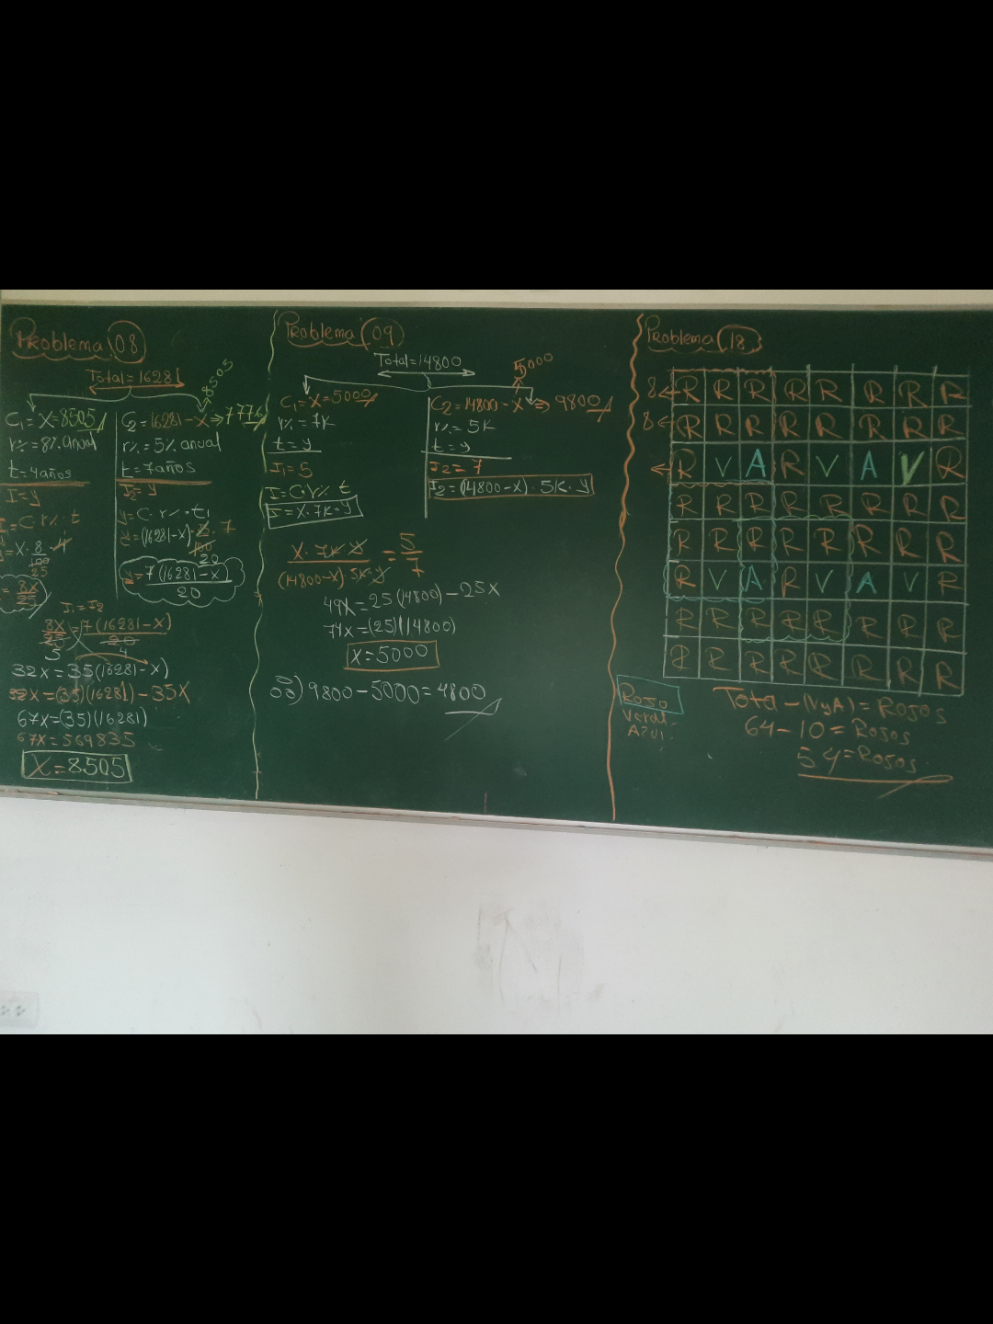 Problema 08
Total=16281
-8505
C₁=X=8505
r%=8% anual
t=4años
I=y
I=C·r%·t
y=X·8/100·4
25
y=8X/25
C₂=16281-X⇒7776
r%=5% anual
t=7años
I₂=y
y=C·r%·t₁
y=(16281-X)·5/100·7
20
y=7(16281-X)/20
I₁=I₂
8X/25=7(16281-X)/20
5 4
32X=35(16281-X)
32X=(35)(16281)-35X
67X=(35)(16281)
67X=569835
X=8505
Problema 09
Total=14800
5000
C₁=X=5000
r%=7K
t=y
I₁=5
I=C·r%·t
I=X·7K·y
C₂=14800-X⇒9800
r%=5K
t=y
I₂=7
I₂=(14800-X)·5K·y
X·7K·y/(14800-X)·5K·y=5/7
49X=25(14800)-25X
74X=(25)(14800)
X=5000
9800-5000=4800
Problema 18
8← R R R R R R R R
8← R R R R R R R R
← R V A R V A V R
R R R R R R R R
R R R R R R R R
R V A R V A V R
R R R R R R R R
R R R R R R R R
Rojo
Verde
Azul
Total-(VyA)=Rojos
64-10=Rojos
54=Rojos